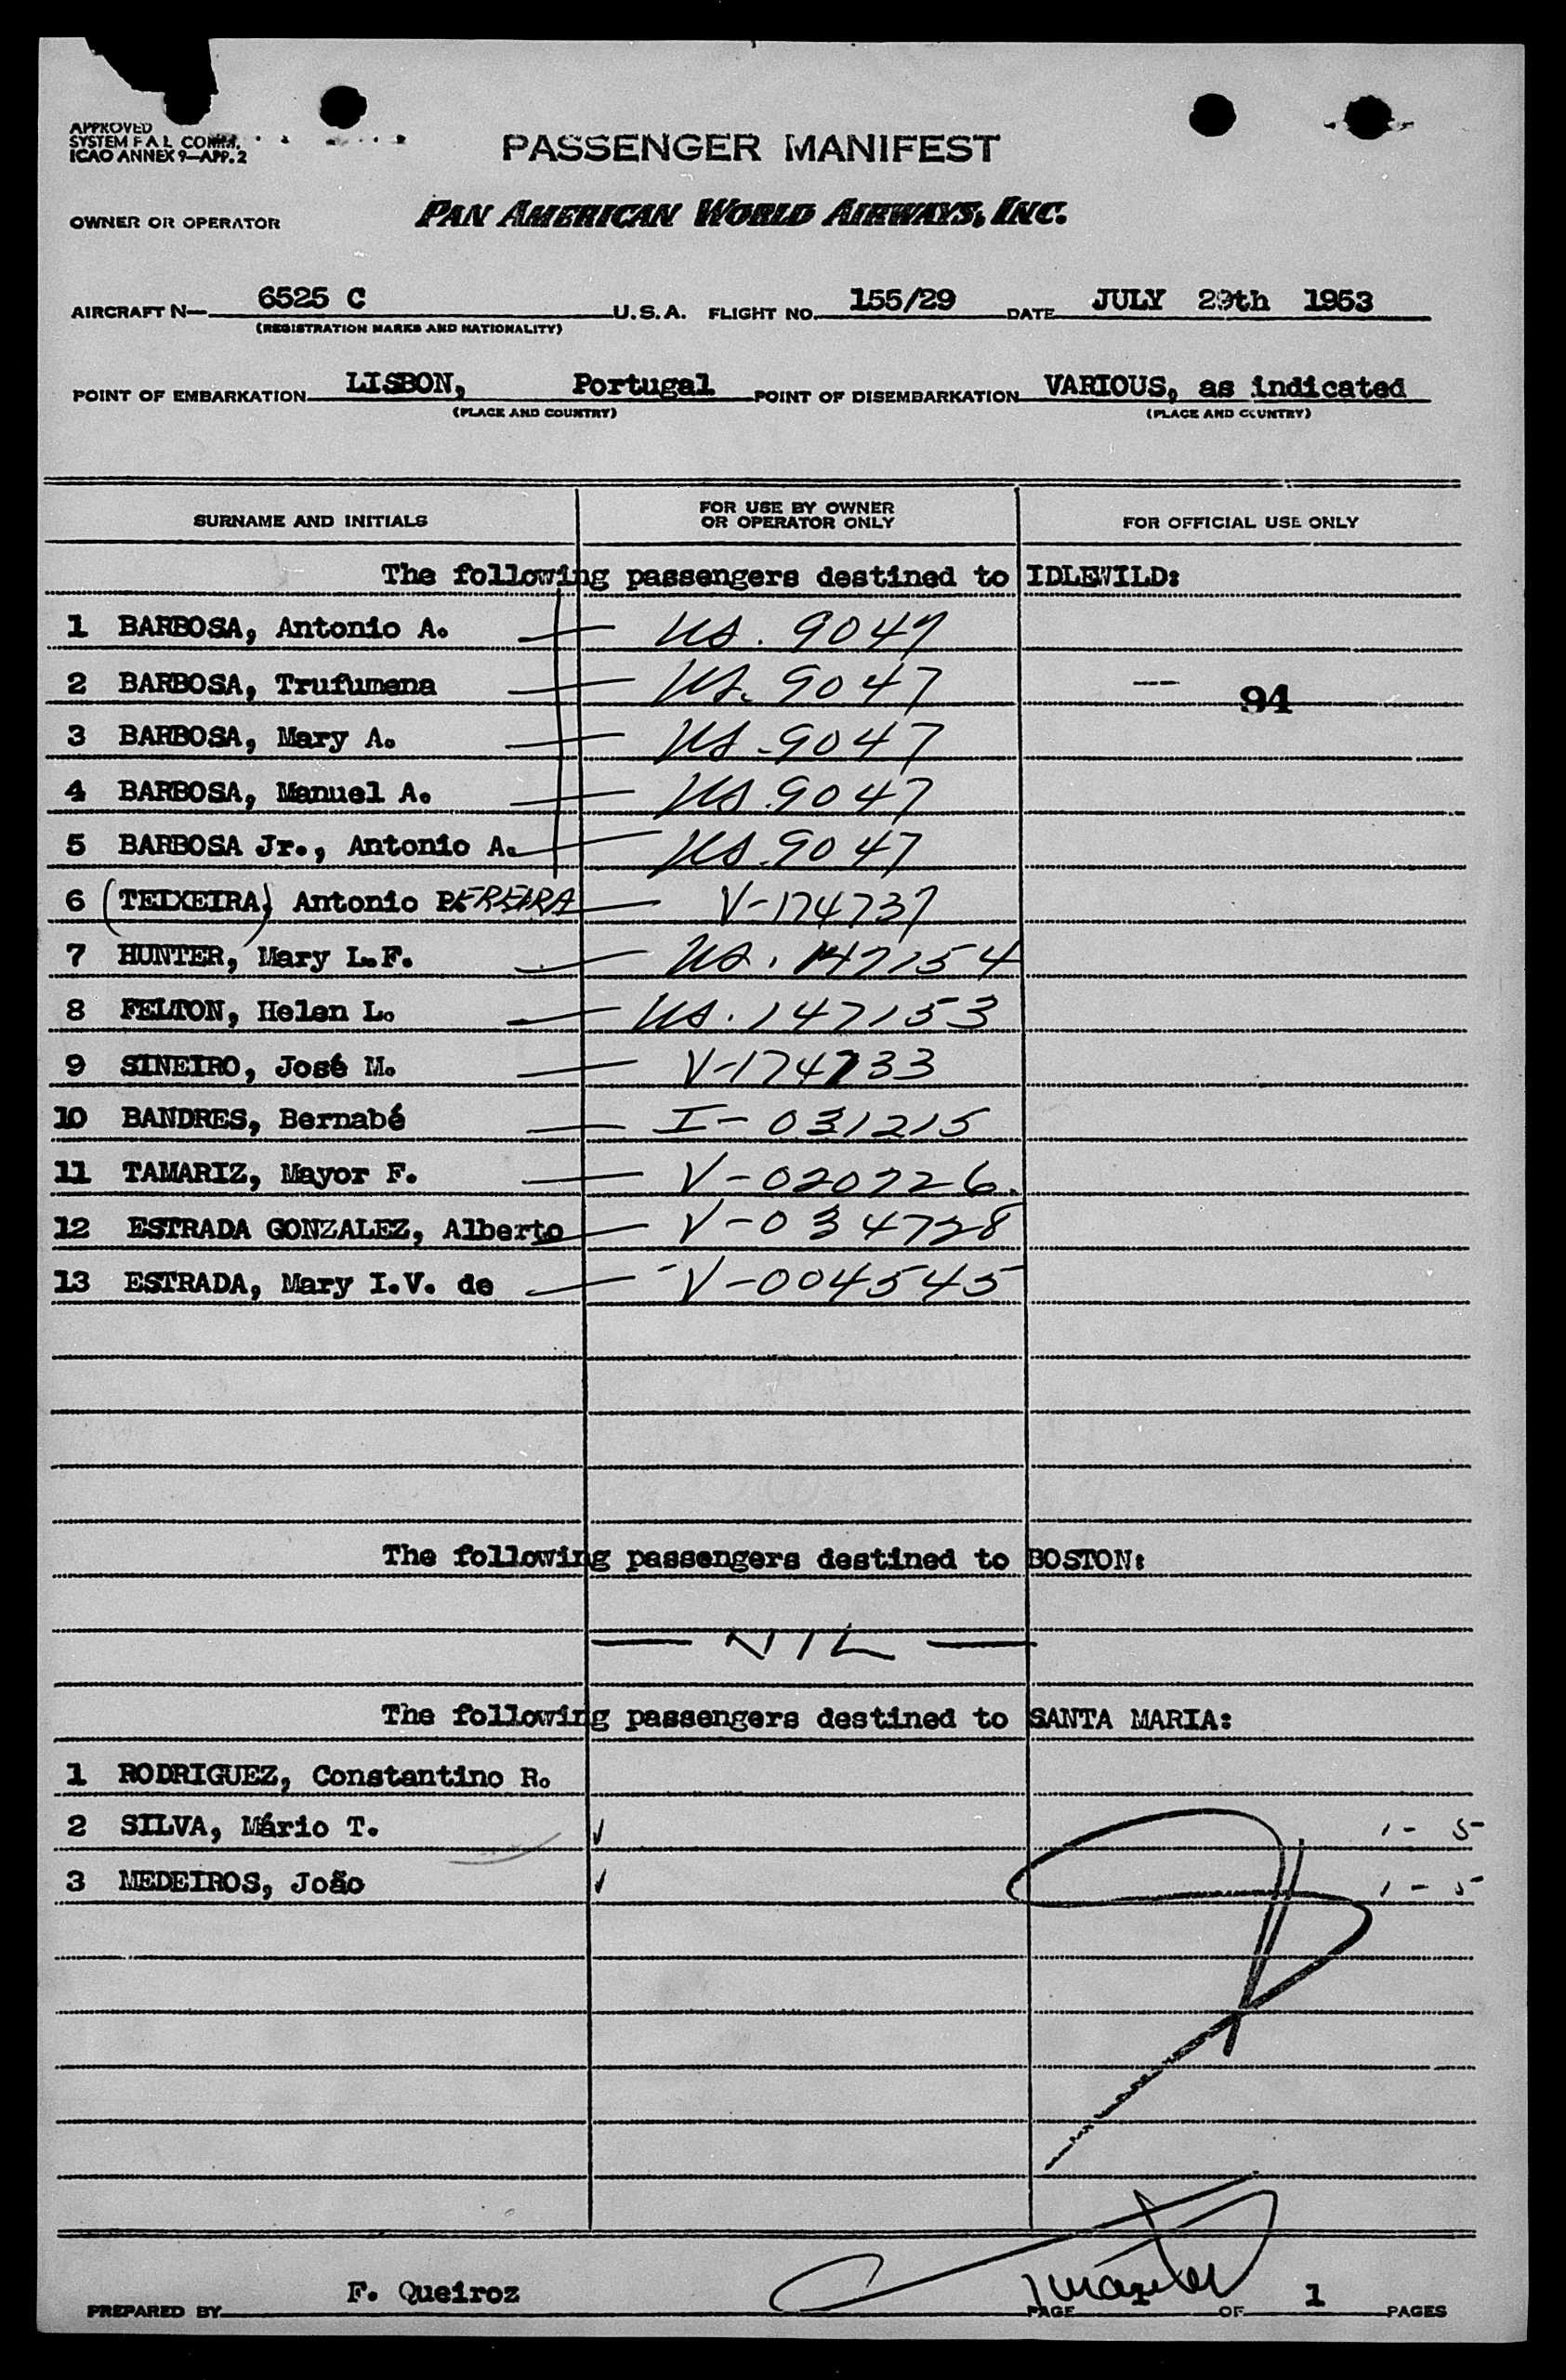 APPROVED
SYSTEM F A L COMM.
ICAO ANNEX 9—APP. 2
PASSENGER MANIFEST
OWNER OR OPERATOR PAN AMERICAN WORLD AIRWAYS, INC.
AIRCRAFT N— 6525 C U.S.A. FLIGHT NO. 155/29 DATE JULY 29th 1953
(REGISTRATION MARKS AND NATIONALITY)
POINT OF EMBARKATION LISBON, Portugal POINT OF DISEMBARKATION VARIOUS, as indicated
(PLACE AND COUNTRY) (PLACE AND COUNTRY)
SURNAME AND INITIALS FOR USE BY OWNER OR OPERATOR ONLY FOR OFFICIAL USE ONLY
The following passengers destined to IDLEWILD:
1 BARBOSA, Antonio A. — US. 9047
2 BARBOSA, Trufumena — US. 9047 94
3 BARBOSA, Mary A. — US. 9047
4 BARBOSA, Manuel A. — US. 9047
5 BARBOSA Jr., Antonio A. — US. 9047
6 (TEIXEIRA) Antonio PEREIRA — V-174737
7 HUNTER, Mary L.F. — US. 147154
8 FELTON, Helen L. — US. 147153
9 SINEIRO, José M. — V-174733
10 BANDRES, Bernabé — I-031215
11 TAMARIZ, Mayor F. — V-020726.
12 ESTRADA GONZALEZ, Alberto — V-034728
13 ESTRADA, Mary I.V. de — V-004545
The following passengers destined to BOSTON:
— NIL —
The following passengers destined to SANTA MARIA:
1 RODRIGUEZ, Constantino R.
2 SILVA, Mário T. ✓ 1 - 5
3 MEDEIROS, João ✓ 1 - 5
PREPARED BY F. Queiroz PAGE OF 1 PAGES